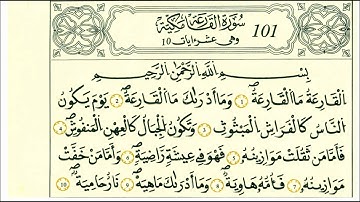 سُورَةُ الْقَارِعَةِ مَكِّيَّةٌ 101
وَهِيَ عَشْرُ اٰيَاتٍ 10
بِسْمِ اللّٰهِ الرَّحْمٰنِ الرَّحِيمِ
اَلْقَارِعَةُ مَا الْقَارِعَةُ ۝١ وَمَا اَدْرٰيكَ مَا الْقَارِعَةُ ۝٢ يَوْمَ يَكُونُ
النَّاسُ كَالْفَرَاشِ الْمَبْثُوثِ ۝٣ وَتَكُونُ الْجِبَالُ كَالْعِهْنِ الْمَنْفُوشِ ۝٤
فَاَمَّا مَنْ ثَقُلَتْ مَوَازِينُهُ ۝٥ فَهُوَ فِي عِيشَةٍ رَاضِيَةٍ ۝٦ وَاَمَّا مَنْ خَفَّتْ
مَوَازِينُهُ ۝٧ فَاُمُّهُ هَاوِيَةٌ ۝٨ وَمَا اَدْرٰيكَ مَاهِيَهْ ۝٩ نَارٌ حَامِيَةٌ ۝١٠